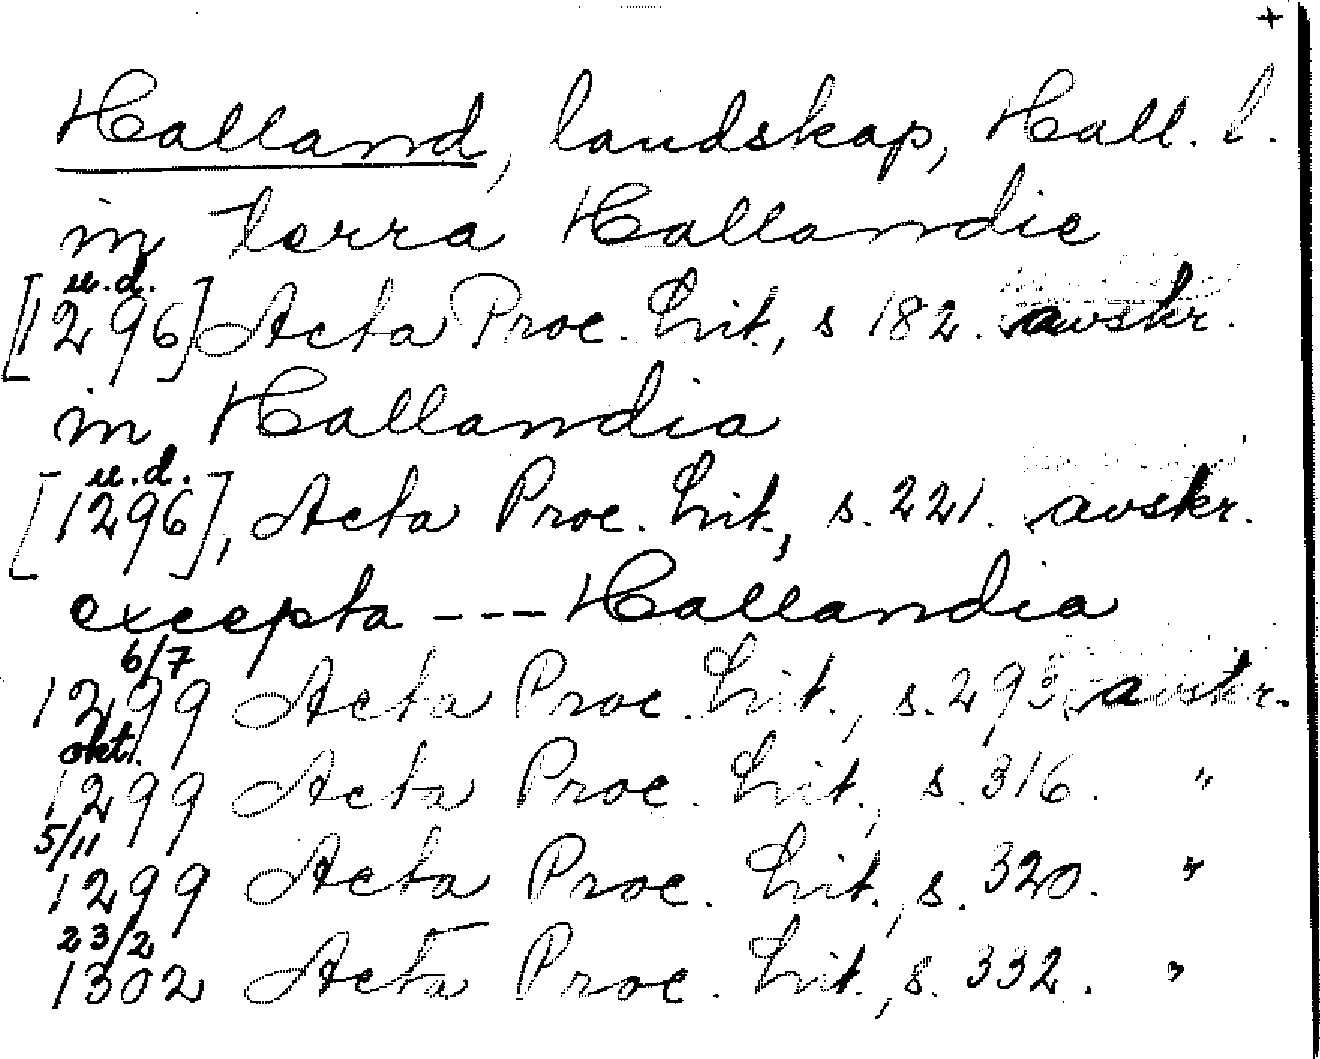 +
Halland, landskap, Hall. l.
in terra Hallandie
u.d.
[1296] Acta Proc. Lit., s 182. avskr.
in Hallandia
u.d.
[1296], Acta Proc. Lit., s. 221. avskr.
excepta --- Hallandia
6/7
1299 Acta Proc. Lit., s. 293. avskr.
okt.
1299 Acta Proc. Lit., s. 316. "
5/11
1299 Acta Proc. Lit., s. 320. "
23/2
1302 Acta Proc. Lit., s. 332. "